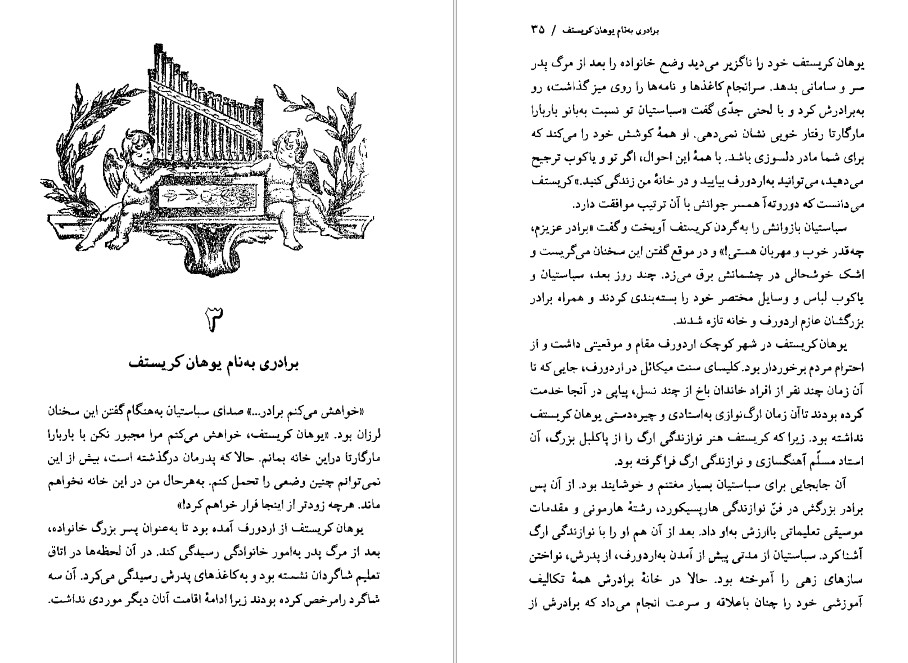 ۳
برادری به‌نام یوهان کریستف
«خواهش می‌کنم برادر...» صدای سباستیان به‌هنگام گفتن این سخنان
لرزان بود. «یوهان کریستف، خواهش می‌کنم مرا مجبور نکن با باربارا
مارگارتا دراین خانه بمانم. حالا که پدرمان درگذشته است، بیش از این
نمی‌توانم چنین وضعی را تحمل کنم. به‌هرحال من در این خانه نخواهم
ماند. هرچه زودتر از اینجا فرار خواهم کرد!»
یوهان کریستف از اردورف آمده بود تا به‌عنوان پسر بزرگ خانواده،
بعد از مرگ پدر به‌امور خانوادگی رسیدگی کند. در آن لحظه‌ها در اتاق
تعلیم شاگردان نشسته بود و به‌کاغذهای پدرش رسیدگی می‌کرد. آن سه
شاگرد رامرخص کرده بودند زیرا ادامهٔ اقامت آنان دیگر موردی نداشت.
برادری به‌نام یوهان کریستف / ۳۵
یوهان کریستف خود را ناگزیر می‌دید وضع خانواده را بعد از مرگ پدر
سر و سامانی بدهد. سرانجام کاغذها و نامه‌ها را روی میز گذاشت، رو
به‌برادرش کرد و با لحنی جدّی گفت «سباستیان تو نسبت به‌بانو باربارا
مارگارتا رفتار خوبی نشان نمی‌دهی. او همهٔ کوشش خود را می‌کند که
برای شما مادر دلسوزی باشد. با همهٔ این احوال، اگر تو و یاکوب ترجیح
می‌دهید، می‌توانید به‌اردورف بیایید و در خانهٔ من زندگی کنید.» کریستف
می‌دانست که دوروته‌آ همسر جوانش با آن ترتیب موافقت دارد.
سباستیان بازوانش را به‌گردن کریستف آویخت و گفت «برادر عزیزم،
چه‌قدر خوب و مهربان هستی!» و در موقع گفتن این سخنان می‌گریست و
اشک خوشحالی در چشمانش برق می‌زد. چند روز بعد، سباستیان و
یاکوب لباس و وسایل مختصر خود را بسته‌بندی کردند و همراه برادر
بزرگشان عازم اردورف و خانه تازه شدند.
یوهان کریستف در شهر کوچک اردورف مقام و موقعیتی داشت و از
احترام مردم برخوردار بود. کلیسای سنت میکائل در اردورف، جایی که تا
آن زمان چند نفر از افراد خاندان باخ از چند نسل، پیاپی در آنجا خدمت
کرده بودند تاآن زمان ارگ‌نوازی به‌استادی و چیره‌دستی یوهان کریستف
نداشته بود. زیرا که کریستف هنر نوازندگی ارگ را از پاکلبل بزرگ، آن
استاد مسلّم آهنگسازی و نوازندگی ارگ فرا گرفته بود.
آن جابجایی برای سباستیان بسیار مغتنم و خوشایند بود. از آن پس
برادر بزرگش در فنّ نوازندگی هارپسیکورد، رشتهٔ هارمونی و مقدمات
موسیقی تعلیماتی باارزش به‌او داد. بعد از آن هم او را با نوازندگی ارگ
آشناکرد. سباستیان از مدتی پیش از آمدن به‌اردورف، از پدرش، نواختن
سازهای زهی را آموخته بود. حالا در خانهٔ برادرش همهٔ تکالیف
آموزشی خود را چنان باعلاقه و سرعت انجام می‌داد که برادرش از